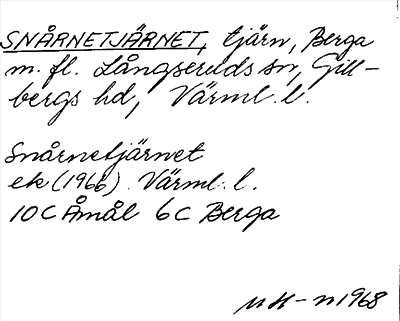 SNÅRNETJÄRNET, tjärn, Berga
m. fl. Långseruds sn, Gill-
bergs hd, Värml. l.
Snårnetjärnet
ek (1966) Värml. l.
10 C Åmål 6 C Berga
M H - n 1968